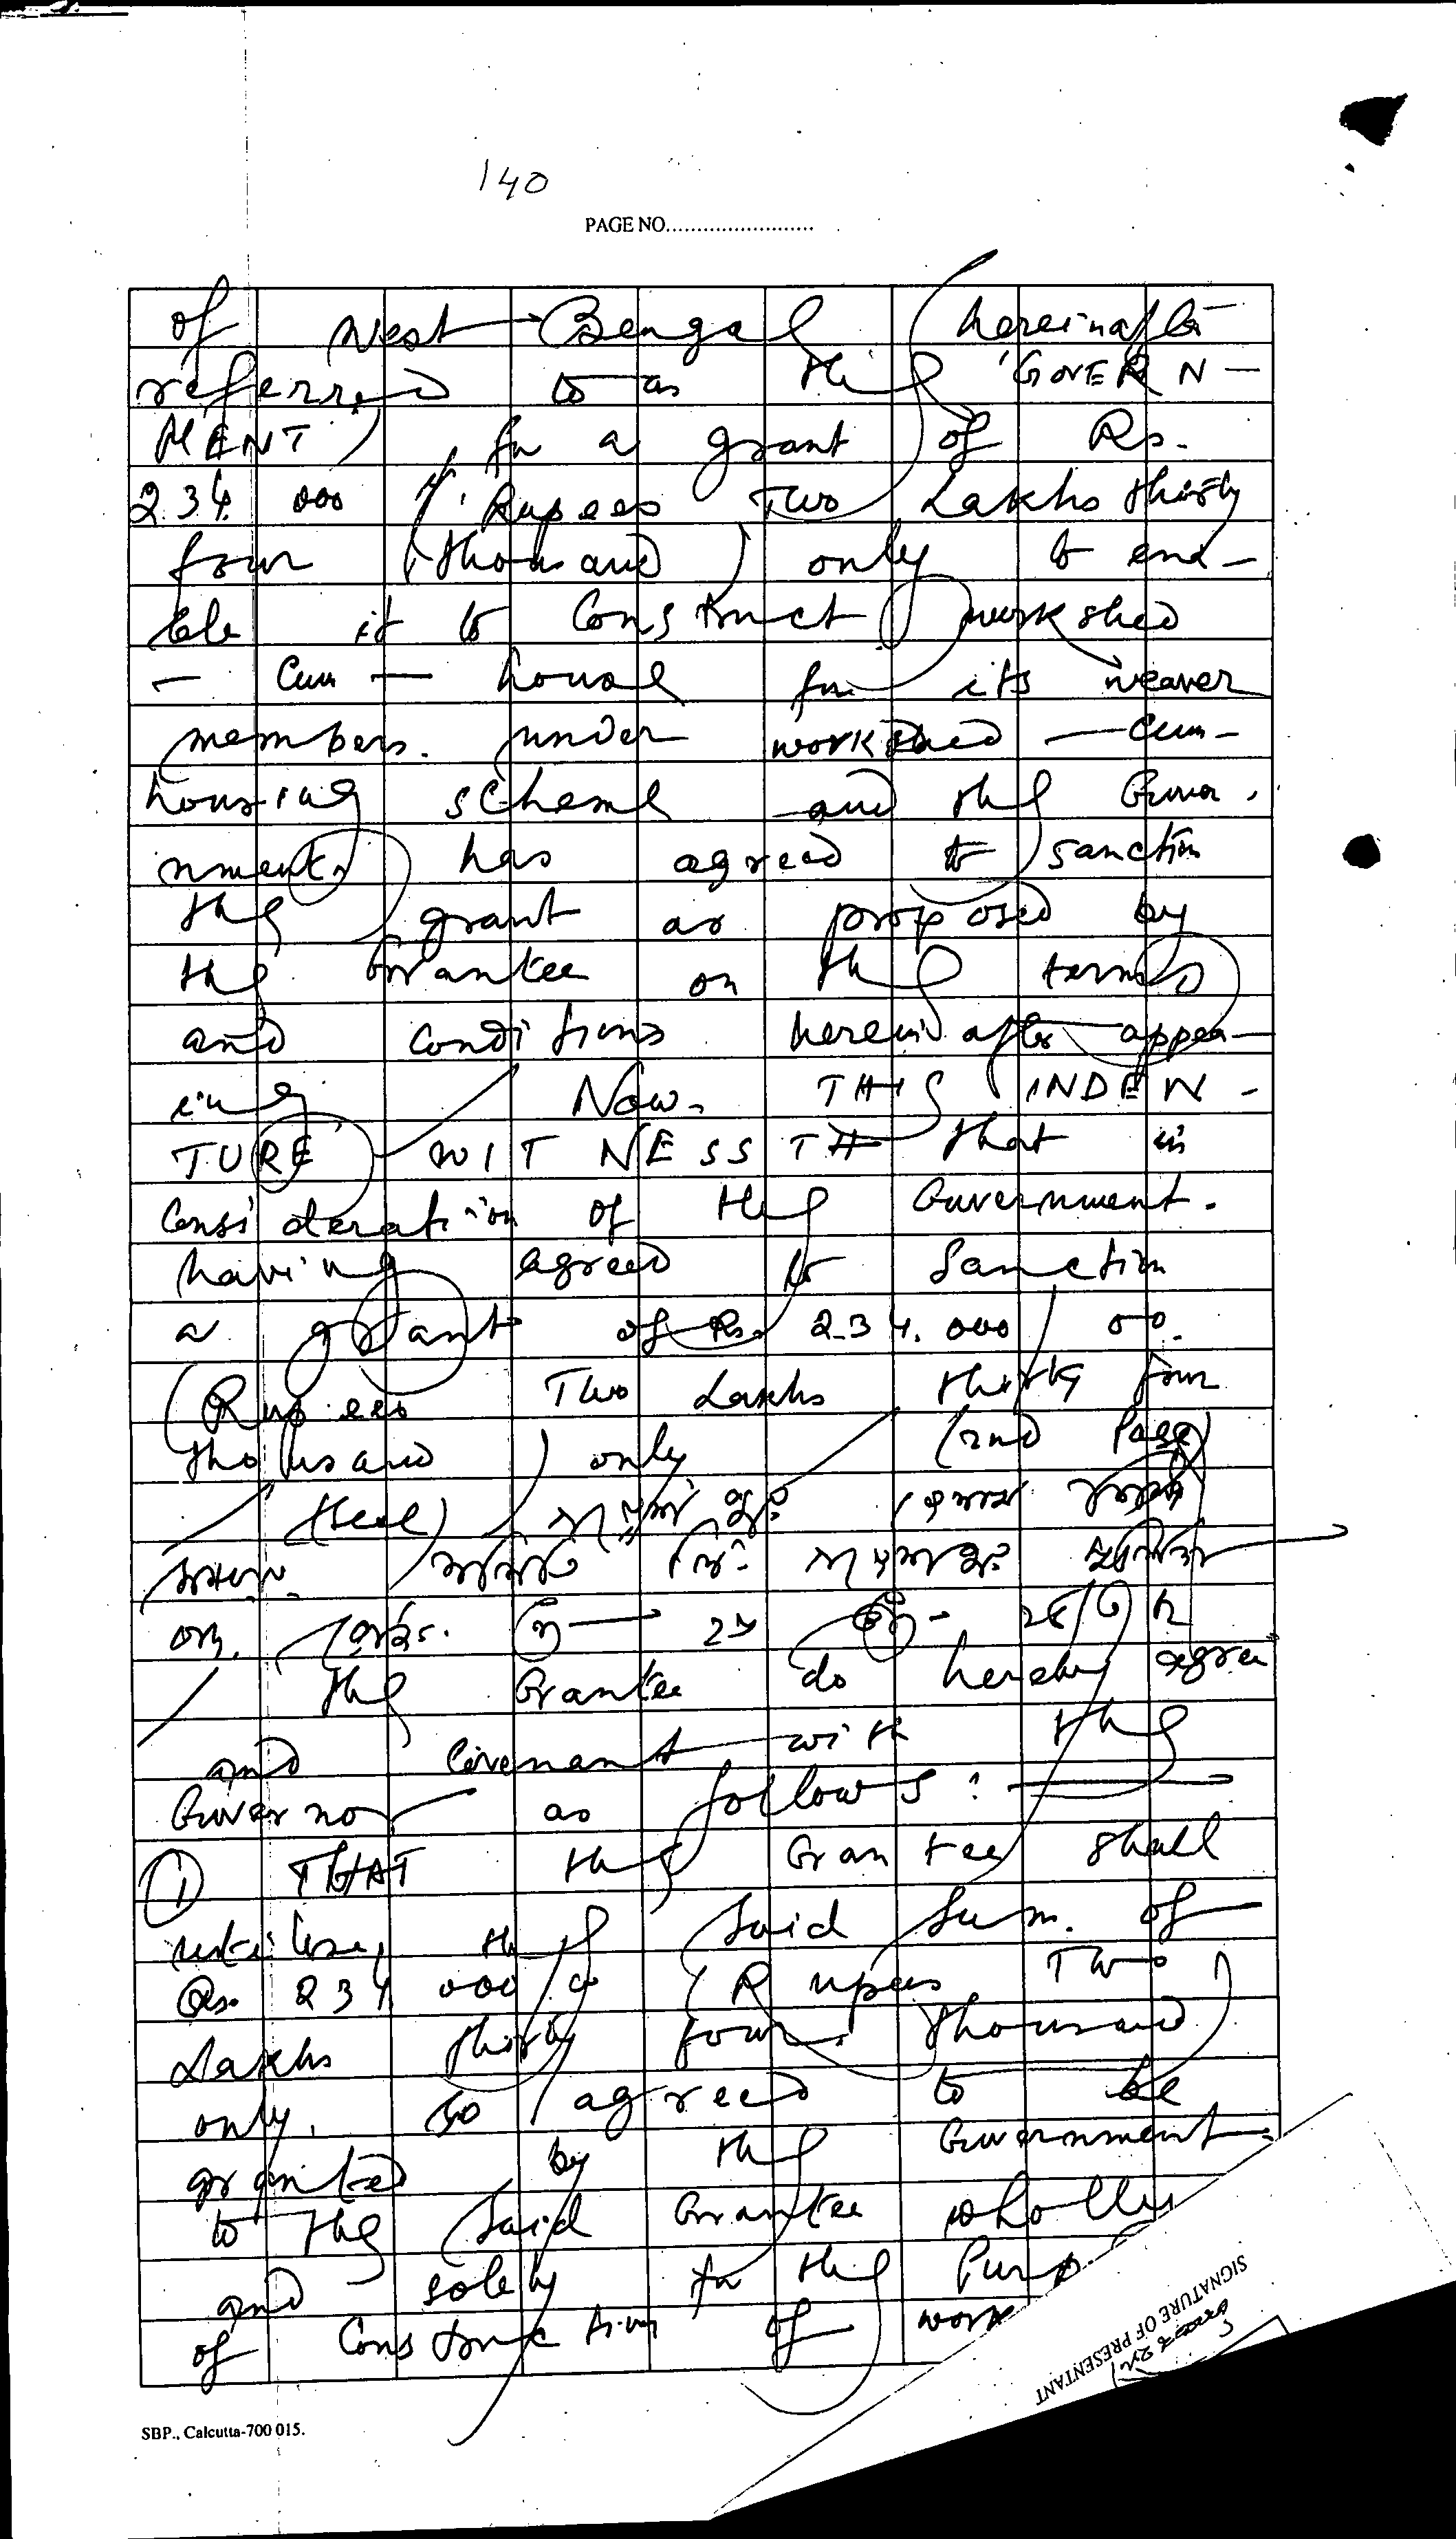 140
PAGE NO........................
of West Bengal hereinafter
referred to as the 'GOVERN-
MENT) for a grant of Rs.
234,000/- (Rupees Two Lakhs thirty
four thousand) only to ena-
ble it to Construct workshed
- Cum - house for its weaver
members. under workshed - Cum-
housing scheme and the Gover.
nment has agreed to sanction
the grant as proposed by
the Grantee on the terms
and conditions hereinafter appea-
ing Now THIS INDEN-
TURE WITNESSTH that in
Consideration of the Government.
having agreed to Sanction
a grant of Rs. 234.000/00.
(Rupees Two Lakhs thirty four
thousand) only (2nd Page)
(Seal)
the Grantee do hereby agree
and Covenant with the
Governor as follows :
① THAT the Grantee shall
utilise, the said sum. of
Rs. 234 000/00 (Rupees Two
Lakhs thirty four. thousand)
only. so agreed to be
granted by the Government
to the said Grantee wholly
and solely for the Purp
of Construction of work
SIGNATURE OF PRESENTANT
SBP., Calcutta-700 015.